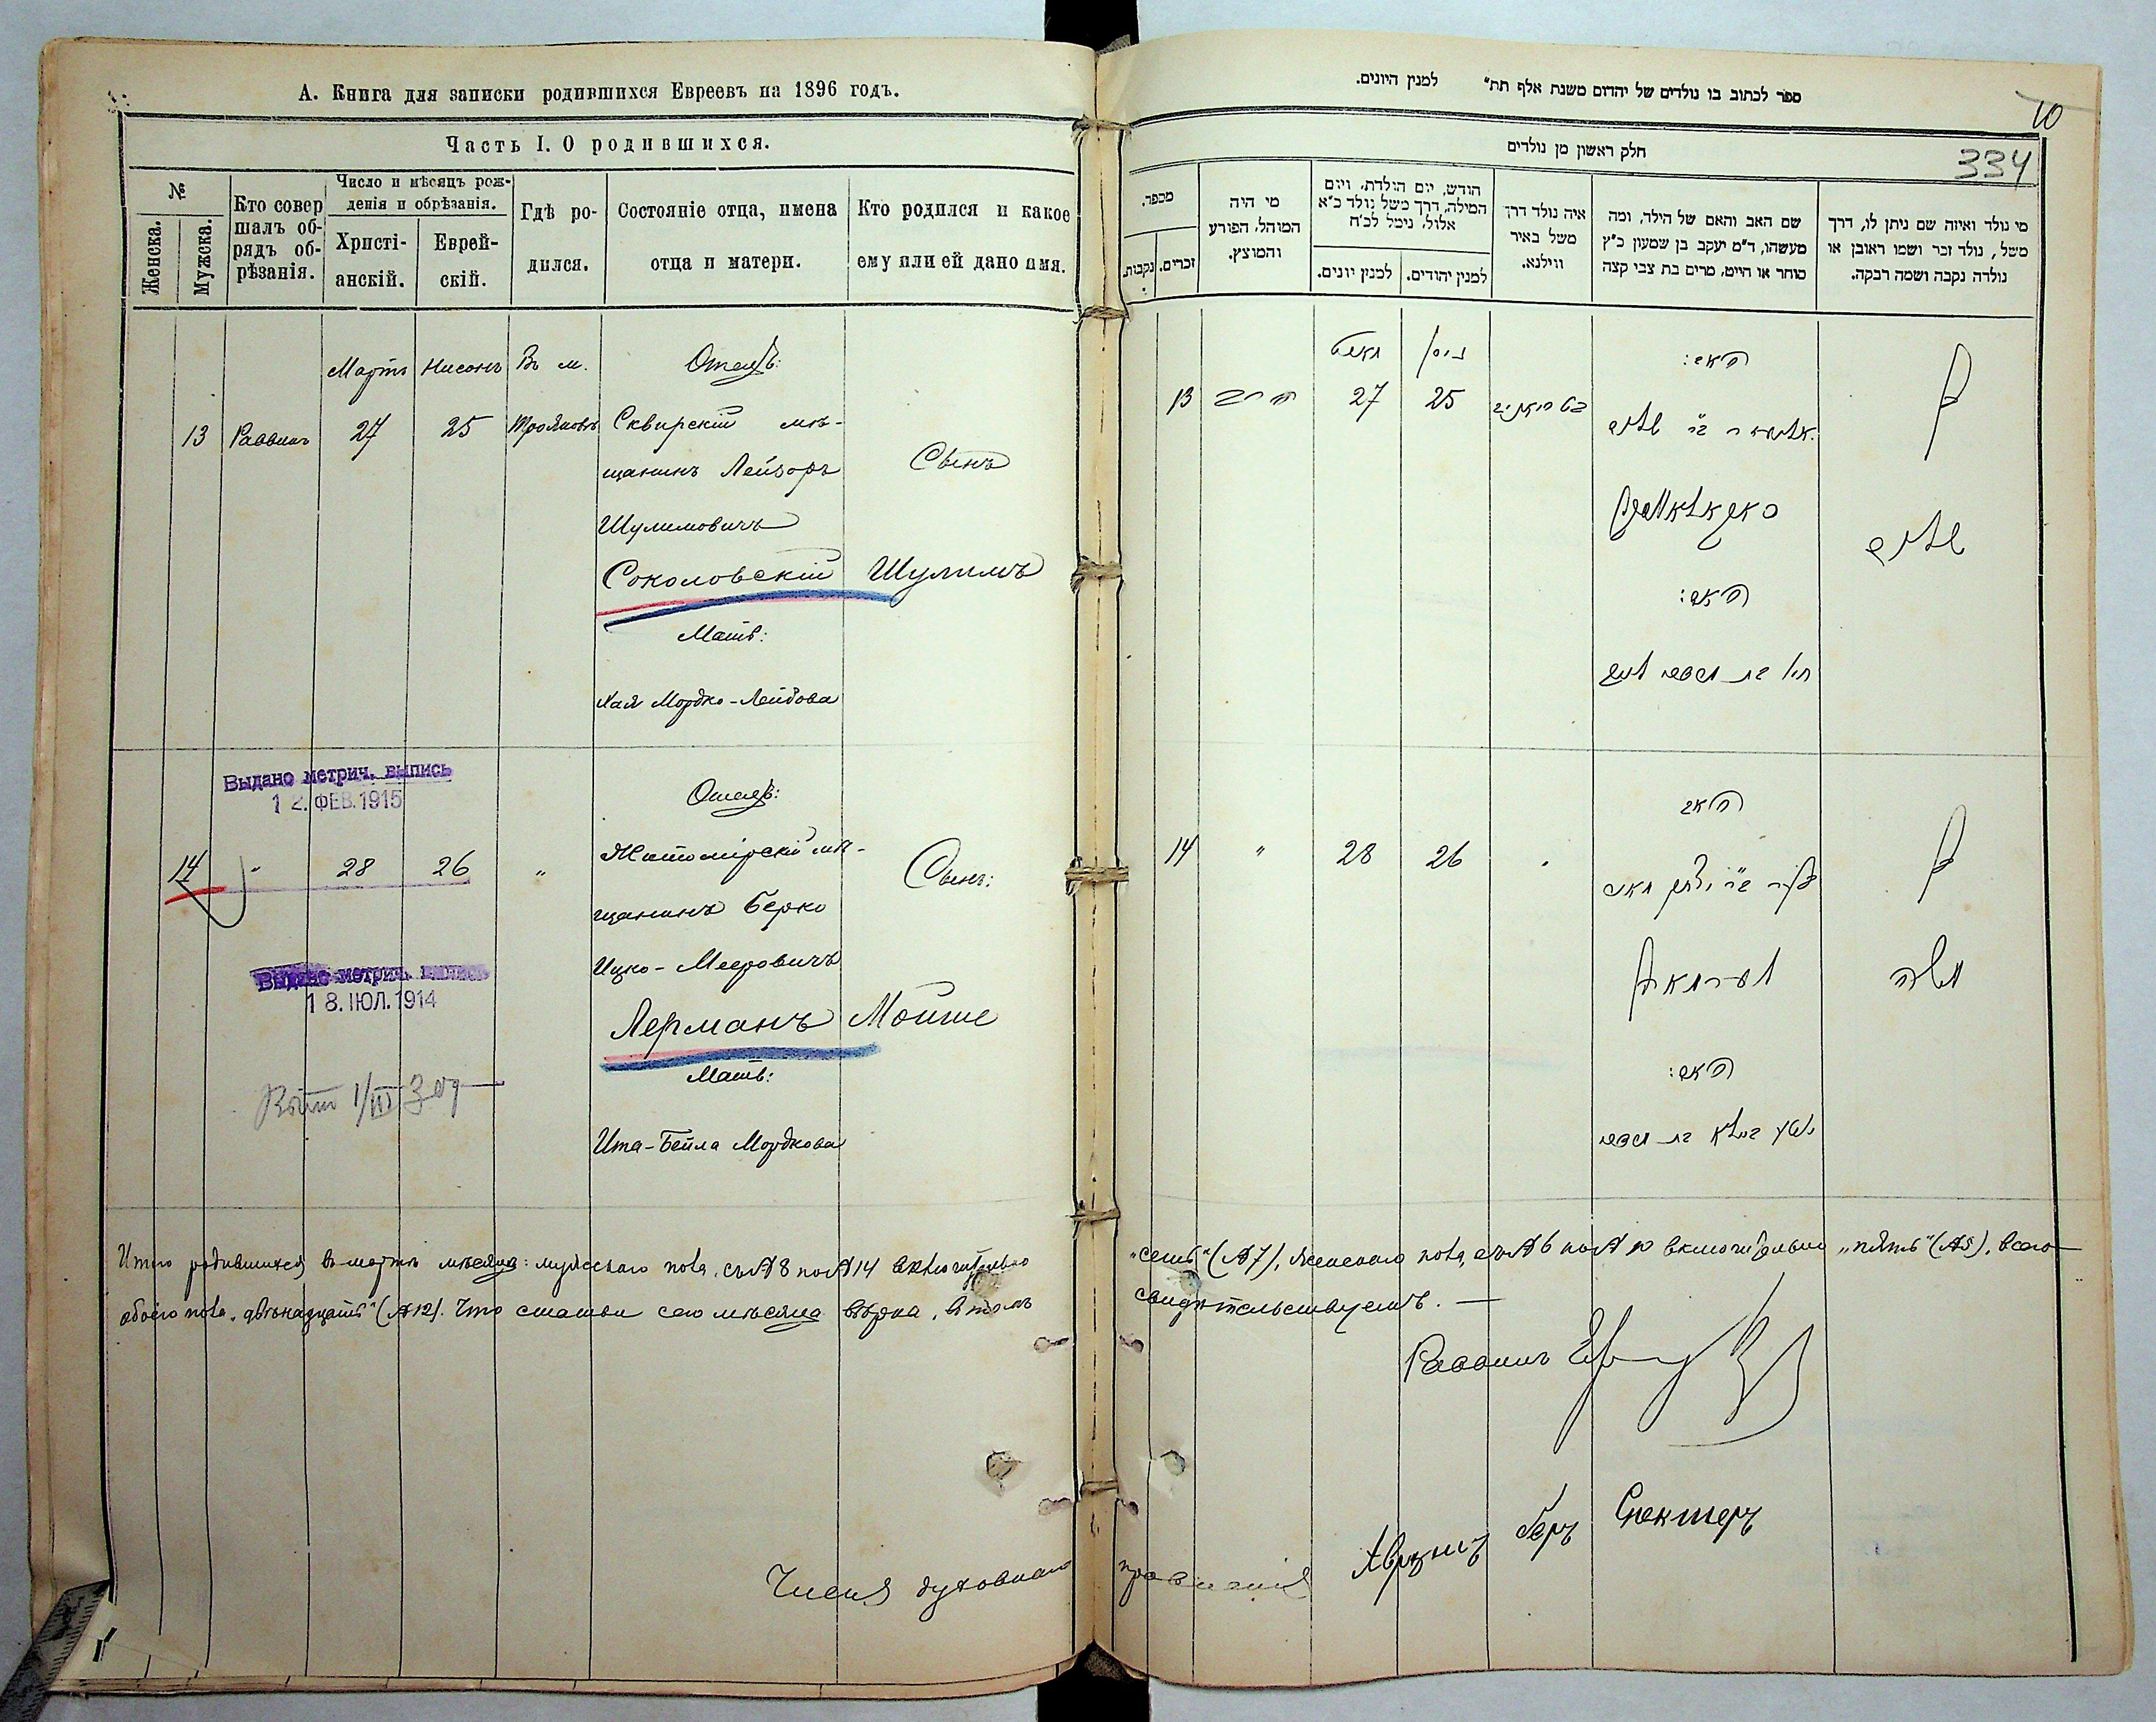 А. Книга для записки родившихся Евреевъ на 1896 годъ.
Часть I. О родившихся.
№
Женска.
Мужска.
Кто совер
шалъ об-
рядъ об-
рѣзанія.
Число и мѣсяцъ рож-
денія и обрѣзанія.
Христі-
анскій.
Еврей-
скій.
Гдѣ ро-
дился.
Состояніе отца, имена
отца и матери.
Кто родился и какое
ему или ей дано имя.
Мартъ Нисонъ Въ м. Отецъ:
13 Раввинъ 27 25 Трояновъ Сквирскій мѣ-
щанинъ Лейзоръ
Сынъ
Шулимовичъ
Соколовскій Шулимъ
Мать:
Хая Мордко-Лейбова
Выдано метрич. выпись
12. ФЕВ. 1915
Отецъ:
14 " 28 26 " Житомірскій мѣ-
Сынъ:
щанинъ Берко
Ицко-Мееровичъ
Выдано метрич. выпись
18. ІЮЛ. 1914
Лерманъ Мойше
Мать:
1/III
Ита-Бейла Мордкова
Итого родившихся въ мартѣ мѣсяцѣ: мужескаго пола, съ № 8 по № 14 включительно
обоего пола „двѣнадцать" (№ 12). Что статьи сего мѣсяца вѣрна, въ томъ
Члена духовнаго
ספר לכתוב בו נולדים של יהדים משנת אלף תת״ למנין היונים.
10
חלק ראשון מן נולדים
334
מספר.
נקבות.
זכרים.
מי היה
המוהל, הפורע
והמוצץ.
חודש, יום הולדת, ויום
המילה, דרך משל נולד כ״א
אלול, נימל לכ״ח
למנין יונים.
למנין יהודים.
איה נולד דרך
משל באיר
ווילנא.
שם האב והאם של הילד, ומה
מעשהו, ד״מ יעקב בן שמעון כ״ץ
סוחר או חייט, מרים בת צבי קצה
מי נולד ואיזה שם ניתן לו, דרך
משל, נולד זכר ושמו ראובן או
נולדה נקבה ושמה רבקה.
מארט ניסן האב:
13 הרב 27 25 בן
שלום
סאקאלאווסקי
האם:
האב
14 " 28 26 " בן
לערמאן משה
האם:
„семь" (№ 7), женскаго пола, съ № 6 по № 10 включительно „пять" (№ 5), всего
свидѣтельствуемъ. —
Раввинъ
правленія Аврумъ Беръ Спекторъ